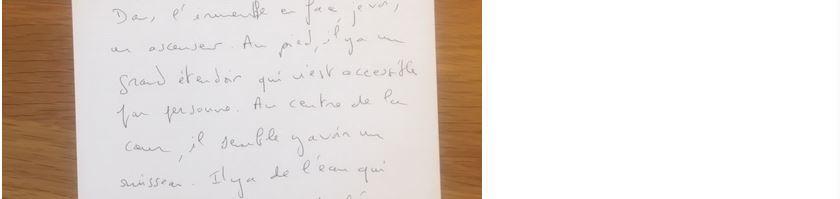 Dans l'immeuble en face, je vois,
un ascenseur. Au pied, il y a un
grand étendoir qui n'est accessible
par personne. Au centre de la
cour, il semble y avoir un
ruisseau. Il y a de l'eau qui